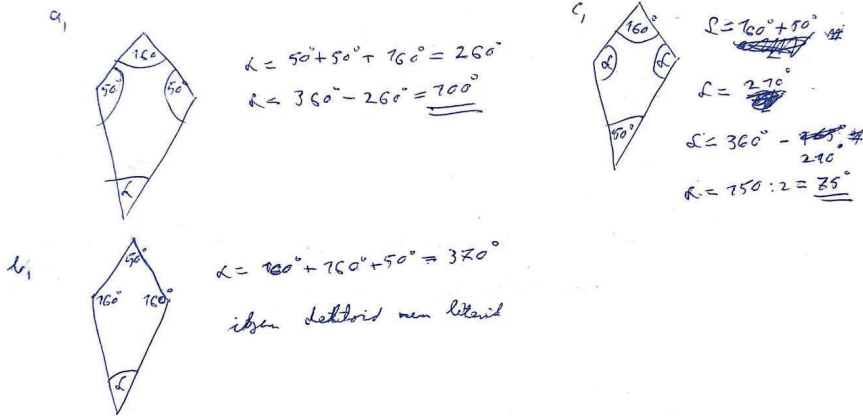 a,
160
50° 50°
α
α = 50° + 50° + 160° = 260°
α = 360° - 260° = 100°
b,
50°
160° 160°
α
α = 160° + 160° + 50° = 370°
ilyen deltoid nem létezik
c,
160°
α α
50°
α = 160° + 50°
α = 210°
α = 360° - 210°
α = 150 : 2 = 75°